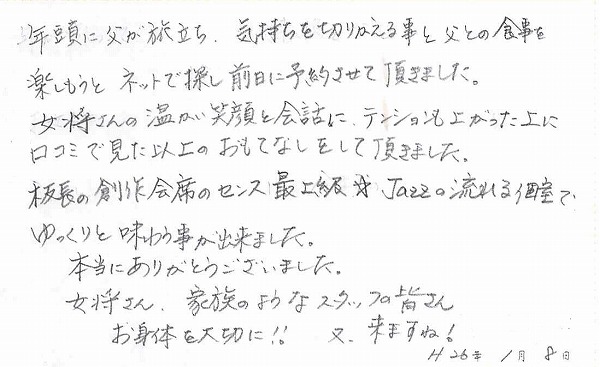 年頭に父が旅立ち、気持ちを切りかえる事と父との食事を
楽しもうと ネットで探し前日に予約させて頂きました。
女将さんの温かい笑顔と会話に、テンションも上がった上に
口コミで見た以上のおもてなしをして頂きました。
板長の創作会席のセンス最上級☆ Jazzの流れる個室で
ゆっくりと味わう事が出来ました。
本当にありがとうございました。
女将さん、家族のようなスタッフの皆さん
お身体を大切に!! 又、来ますね!
H26年 1月 8日